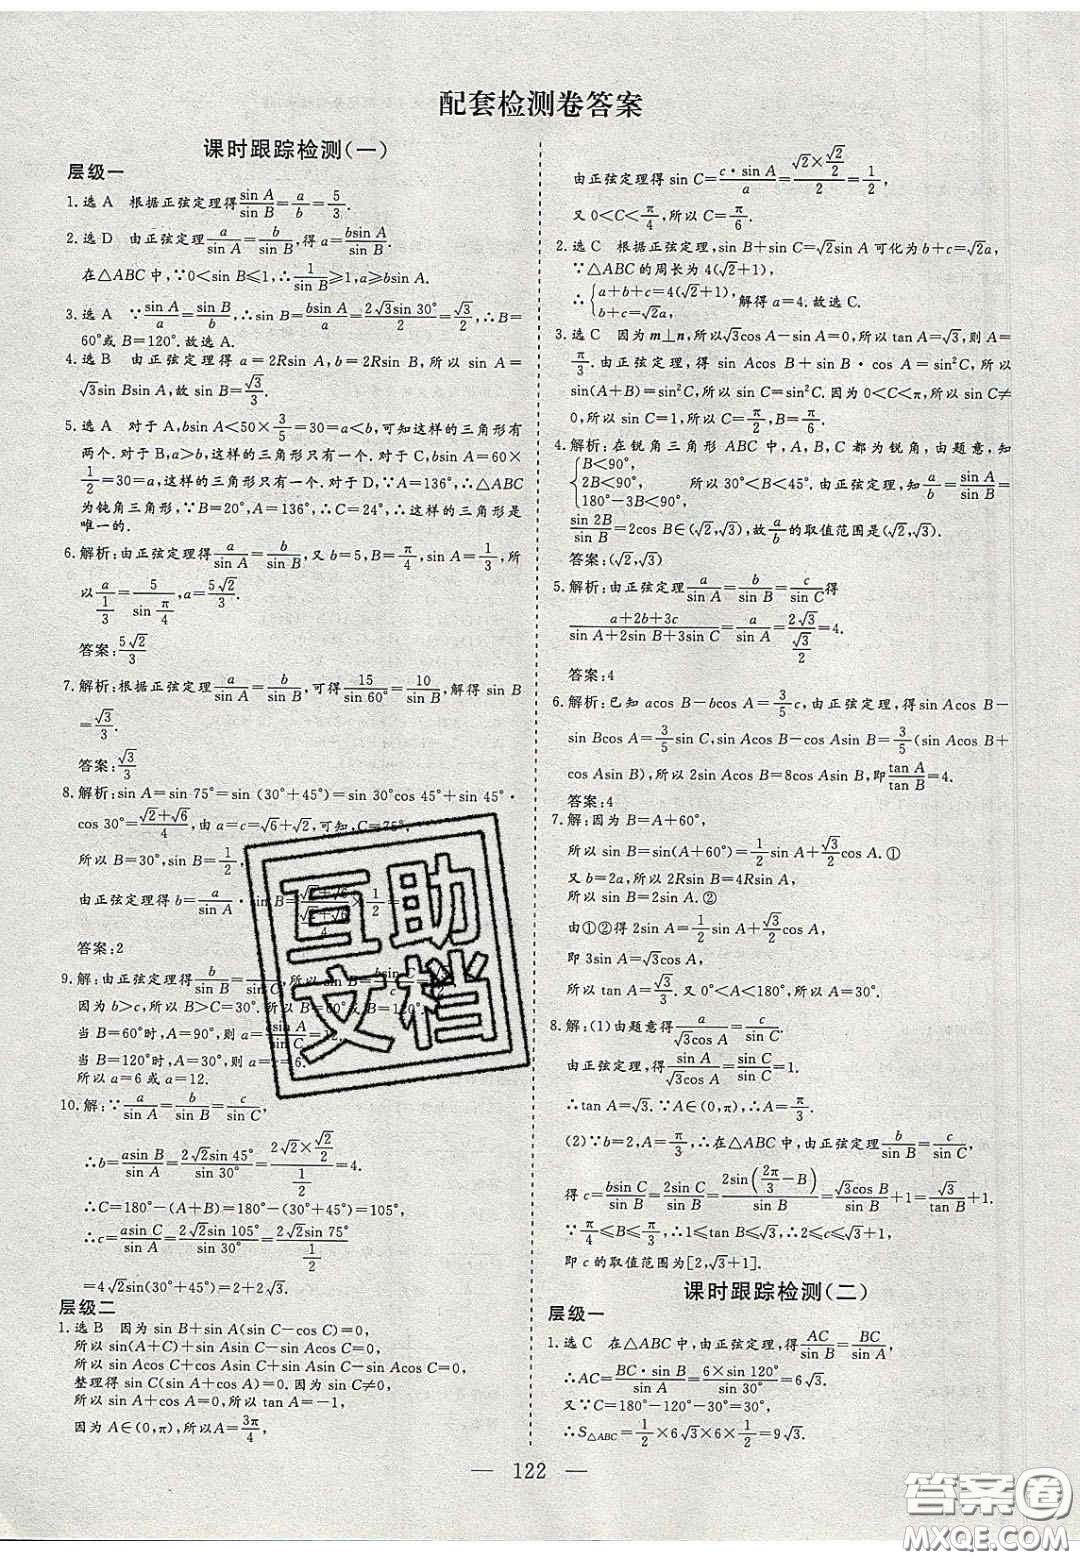 配套检测卷答案
课时跟踪检测(一)
层级一
1.选 A 根据正弦定理得sin A/sin B=a/b=5/3.
2.选 D 由正弦定理a/sin A=b/sin B,得 a=bsin A/sin B.
在△ABC 中,∵0<sin B≤1,∴1/sin B≥1,a≥bsin A.
3.选 A ∵sin A/a=sin B/b,∴sin B=bsin A/a=2√3sin 30°/2=√3/2,∴B=
60°或 B=120°.故选 A.
4.选 B 由正弦定理得 a=2Rsin A,b=2Rsin B,所以 sin A=
√3sin Bsin A,故 sin B=√3/3.
5.选 A 对于 A,bsin A<50×3/5=30=a<b,可知这样的三角形有
两个.对于 B,a>b,这样的三角形只有一个.对于 C,bsin A=60×
1/2=30=a,这样的三角形只有一个.对于 D,∵A=136°,∴△ABC
为钝角三角形,∵B=20°,A=136°,∴C=24°,∴这样的三角形是
唯一的.
6.解析:由正弦定理得a/sin A=b/sin B,又 b=5,B=π/4,sin A=1/3,所
以a/(1/3)=5/sin π/4,a=5√2/3.
答案:5√2/3
7.解析:根据正弦定理a/sin A=b/sin B,可得15/sin 60°=10/sin B,解得 sin B
=√3/3.
答案:√3/3
8.解析:sin A=sin 75°=sin (30°+45°)=sin 30°cos 45°+sin 45°·
cos 30°=(√2+√6)/4,由 a=c=√6+√2,可知,C=75°,
所以 B=30°,sin B=1/2,
由正弦定理得 b=a/sin A·sin B=(√2+√6)/((√2+√6)/4)×1/2=
答案:2
9.解:由正弦定理得b/sin B=c/sin C,所以 sin B=bsin C/c
因为 b>c,所以 B>C=30°,所以 B=60°或 B=120°.
当 B=60°时,A=90°,则 a=csin A/sin C=12
当 B=120°时,A=30°,则 a= =6.
所以 a=6 或 a=12.
10.解:∵a/sin A=b/sin B=c/sin C,
∴b=asin B/sin A=2√2sin 45°/sin 30°=(2√2×√2/2)/(1/2)=4.
∴C=180°-(A+B)=180°-(30°+45°)=105°,
∴c=asin C/sin A=2√2sin 105°/sin 30°=2√2sin 75°/(1/2)
=4√2sin(30°+45°)=2+2√3.
层级二
1.选 B 因为 sin B+sin A(sin C-cos C)=0,
所以 sin(A+C)+sin Asin C-sin Acos C=0,
所以 sin Acos C+cos Asin C+sin Asin C-sin Acos C=0,
整理得 sin C(sin A+cos A)=0.因为 sin C≠0,
所以 sin A+cos A=0,所以 tan A=-1,
因为 A∈(0,π),所以A=3π/4,
由正弦定理得 sin C=c·sin A/a=(√2×√2/2)/2=1/2,
又 0<C<π/4,所以 C=π/6.
2.选 C 根据正弦定理,sin B+sin C=√2sin A 可化为 b+c=√2a,
∵△ABC 的周长为 4(√2+1),
∴{a+b+c=4(√2+1), b+c=√2a, 解得 a=4.故选 C.
3.选 C 因为 m⊥n,所以√3cos A-sin A=0,所以 tan A=√3,则 A=
π/3.由正弦定理,得 sin Acos B+sin B·cos A=sin²C,所以
sin(A+B)=sin²C,所以 sin C=sin²C.因为 0<C<π,所以 sin C≠
0,所以 sin C=1,所以 C=π/2,B=π/6.
4.解析:在锐角三角形 ABC 中,A,B,C 都为锐角,由题意,知
{B<90°, 2B<90°, 180°-3B<90°, 所以 30°<B<45°.由正弦定理,知a/b=sin A/sin B=
sin 2B/sin B=2cos B∈(√2,√3),故a/b的取值范围是(√2,√3).
答案:(√2,√3)
5.解析:由正弦定理a/sin A=b/sin B=c/sin C得
(a+2b+3c)/(sin A+2sin B+3sin C)=a/sin A=2√3/(√3/2)=4.
答案:4
6.解析:已知 acos B-bcos A=3/5c,由正弦定理,得sin Acos B-
sin Bcos A=3/5sin C,sin Acos B-cos Asin B=3/5(sin Acos B+
cos Asin B),所以 2sin Acos B=8cos Asin B,即tan A/tan B=4.
答案:4
7.解:因为 B=A+60°,
所以 sin B=sin(A+60°)=1/2sin A+√3/2cos A.①
又 b=2a,所以 2Rsin B=4Rsin A,
所以 sin B=2sin A.②
由①②得 2sin A=1/2sin A+√3/2cos A,
即 3sin A=√3cos A,
所以 tan A=√3/3.又 0°<A<180°,所以 A=30°.
8.解:(1)由题意得a/√3cos A=c/sin C,
由正弦定理得sin A/√3cos A=sin C/sin C=1,
∴tan A=√3,∵A∈(0,π),∴A=π/3.
(2)∵b=2,A=π/3,∴在△ABC 中,由正弦定理b/sin B=c/sin C,
得 c=bsin C/sin B=2sin C/sin B=2sin(2π/3-B)/sin B=√3cos B/sin B+1=√3/tan B+1.
∵π/4≤B≤π/3,∴1≤tan B≤√3,∴2≤c≤√3+1,
即 c 的取值范围为[2,√3+1].
课时跟踪检测(二)
层级一
1.选 C 在△ABC 中,由正弦定理,得AC/sin B=BC/sin A,
∴AC=BC·sin B/sin A=6×sin 120°/sin 30°=6√3.
又∵C=180°-120°-30°=30°,
∴S△ABC=1/2×6√3×6×1/2=9√3.
— 122 —
互助
文档
答案圈
MXQE.COM